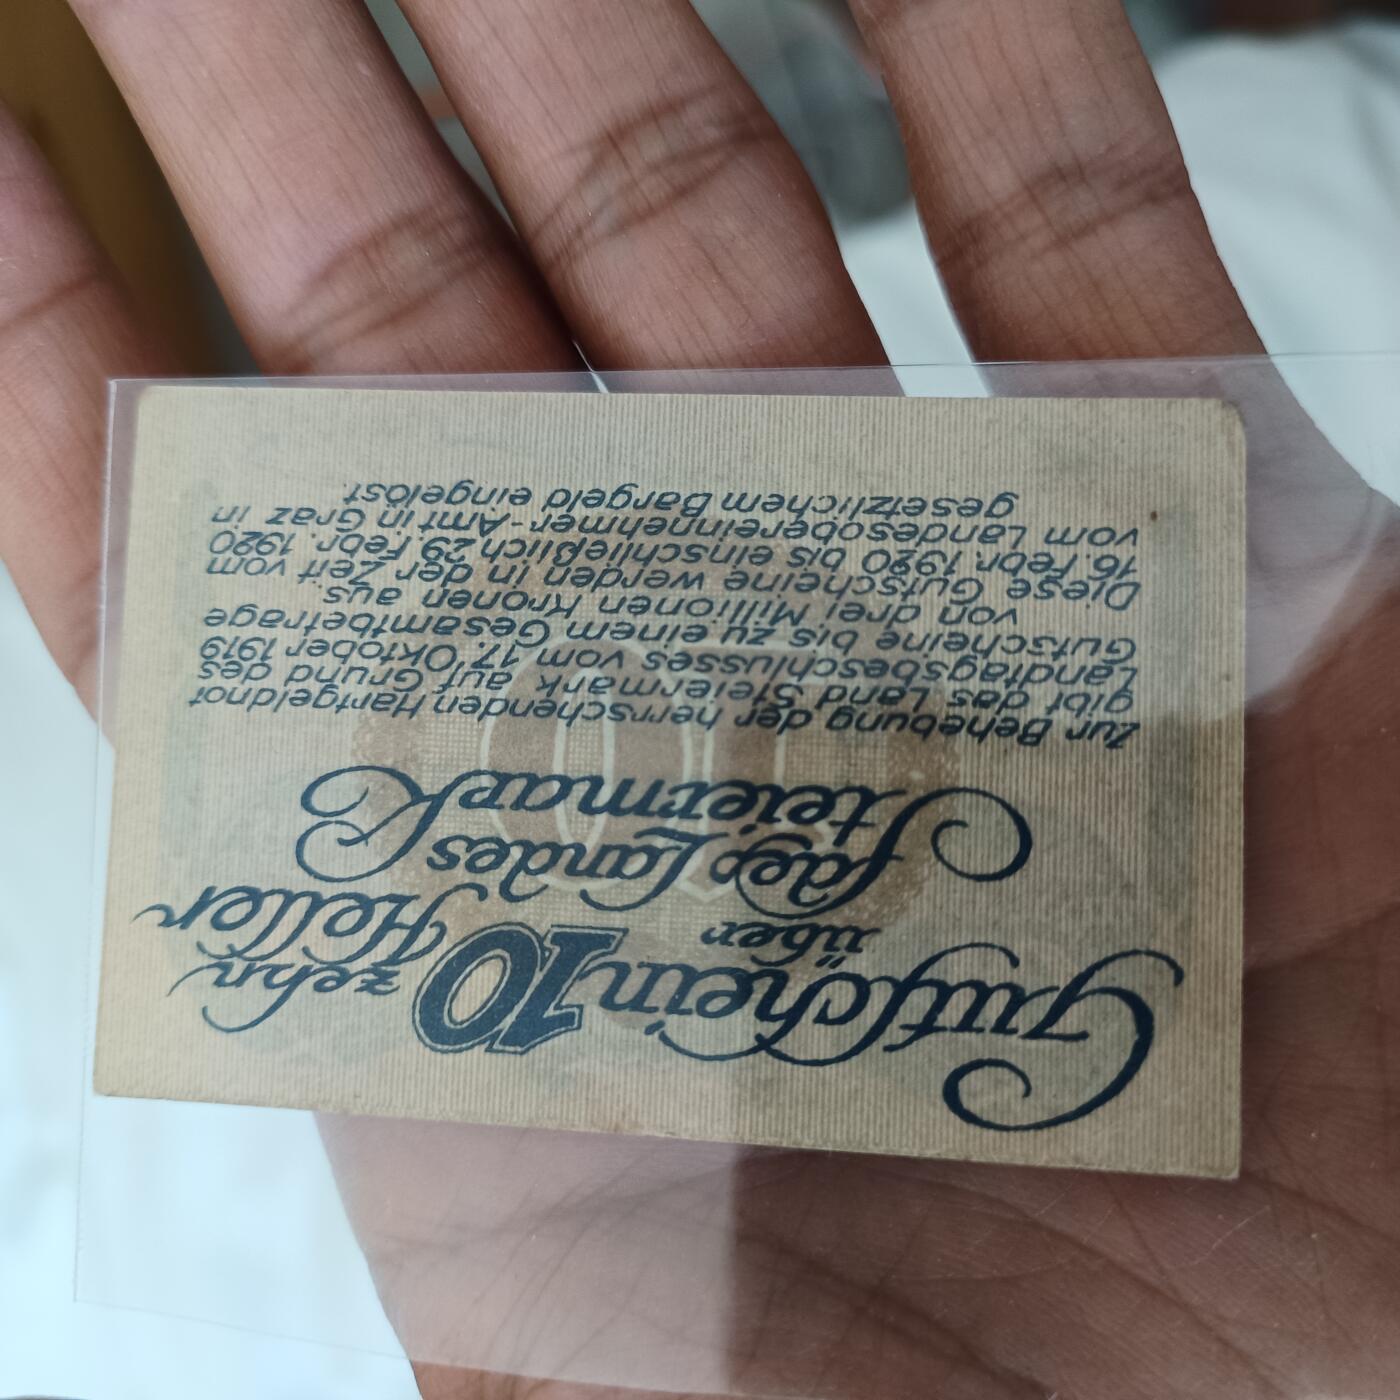 Gutschein 10 zehn Heller
über
des Landes
Steiermark
Zur Behebung der herrschenden Hartgeldnot
gibt das Land Steiermark auf Grund des
Landtagsbeschlusses vom 17. Oktober 1919
Gutscheine bis zu einem Gesamtbetrage
von drei Millionen Kronen aus.
Diese Gutscheine werden in der Zeit vom
16. Febr. 1920 bis einschließlich 29. Febr. 1920
vom Landesobereinnehmer-Amt in Graz in
gesetzlichem Bargeld eingelöst.
10